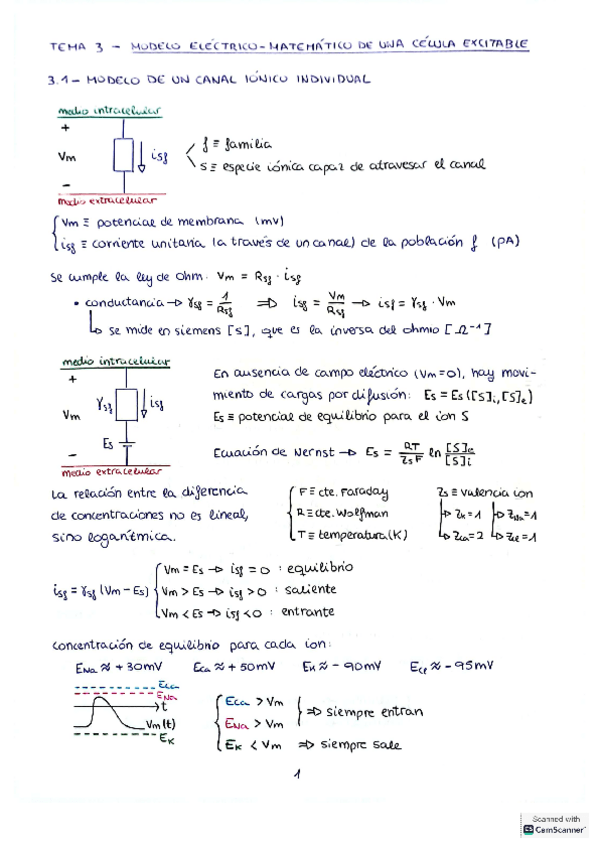 TEMA 3 - MODELO ELÉCTRICO-MATEMÁTICO DE UNA CÉLULA EXCITABLE
3.1 - MODELO DE UN CANAL IÓNICO INDIVIDUAL
medio intracelular
+
Vm
isf
f ≡ familia
s ≡ especie iónica capaz de atravesar el canal
-
medio extracelular
Vm ≡ potencial de membrana (mV)
isf ≡ corriente unitaria (a través de un canal) de la población f (pA)
Se cumple la ley de Ohm: Vm = Rsf · isf
• conductancia → γsf = 1/Rsf ⇒ isf = Vm/Rsf → isf = γsf · Vm
↳ se mide en siemens [S], que es la inversa del ohmio [Ω⁻¹]
medio intracelular
+
Vm
γsf
isf
Es
-
medio extracelular
En ausencia de campo eléctrico (Vm=0), hay movi-
miento de cargas por difusión: Es = Es([S]i,[S]e)
Es ≡ potencial de equilibrio para el ion S
Ecuación de Nernst → Es = RT/ZsF ln [S]e/[S]i
La relación entre la diferencia
de concentraciones no es lineal,
sino logarítmica.
F ≡ cte. Faraday
R ≡ cte. Wolfman
T ≡ temperatura (K)
Zs ≡ valencia ion
→ Zk=1 → ZNa=1
→ Zca=2 → Zcl=1
isf = γsf (Vm - Es)
Vm = Es → isf = 0 : equilibrio
Vm > Es → isf > 0 : saliente
Vm < Es → isf < 0 : entrante
Concentración de equilibrio para cada ion:
ENa ≈ +30mV Eca ≈ +50mV Ek ≈ -90mV Ecl ≈ -95mV
Eca
ENa
t
Vm(t)
Ek
Eca > Vm
ENa > Vm
⇒ siempre entran
Ek < Vm ⇒ siempre sale
1
Scanned with
CS CamScanner